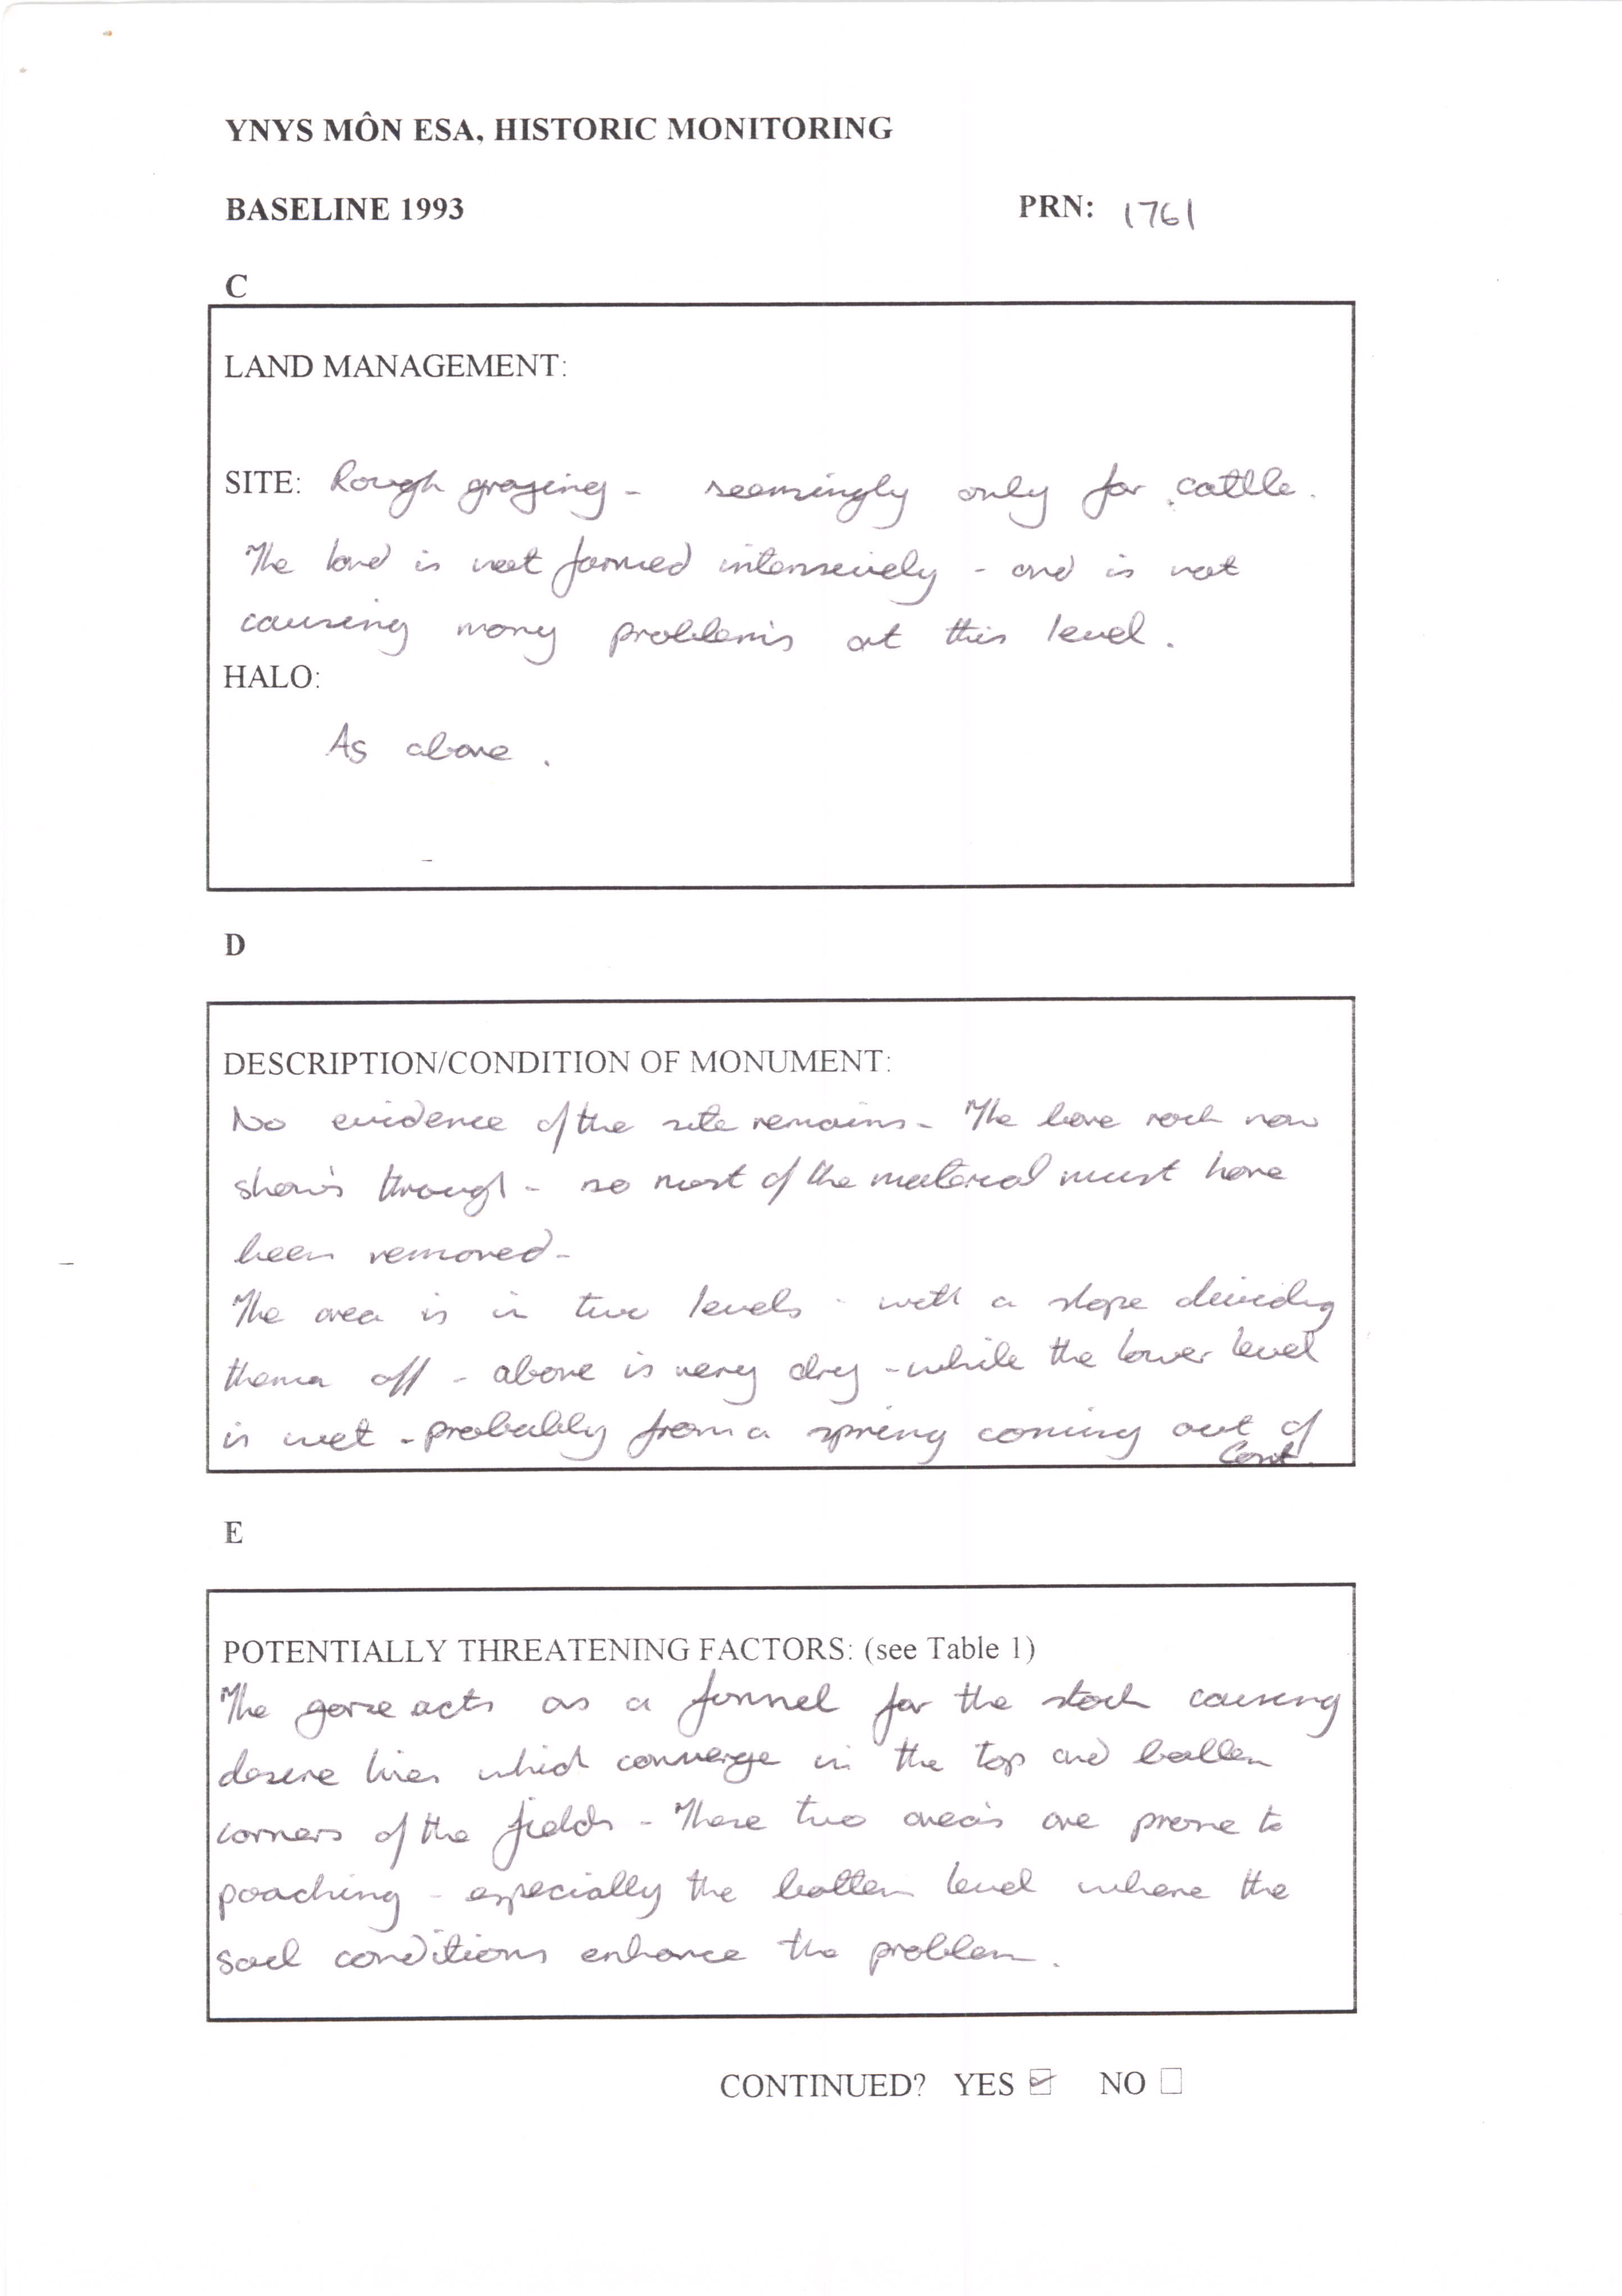 YNYS MÔN ESA, HISTORIC MONITORING
BASELINE 1993
PRN: 1761
C
LAND MANAGEMENT:
SITE: Rough grazing - seemingly only for cattle.
The land is not farmed intensively - and is not
causing many problems at this level.
HALO:
As above.
D
DESCRIPTION/CONDITION OF MONUMENT:
No evidence of the site remains - The bare rock now
shows through - so most of the material must have
been removed -
The area is in two levels - with a slope dividing
them off - above is very dry - while the lower level
is wet - probably from a spring coming out of
Cont.
E
POTENTIALLY THREATENING FACTORS: (see Table 1)
The gorse acts as a funnel for the stock causing
desire lines which converge in the top and bottom
corners of the fields - These two areas are prone to
poaching - especially the bottom level where the
soil conditions enhance the problem.
CONTINUED? YES ☑ NO ☐